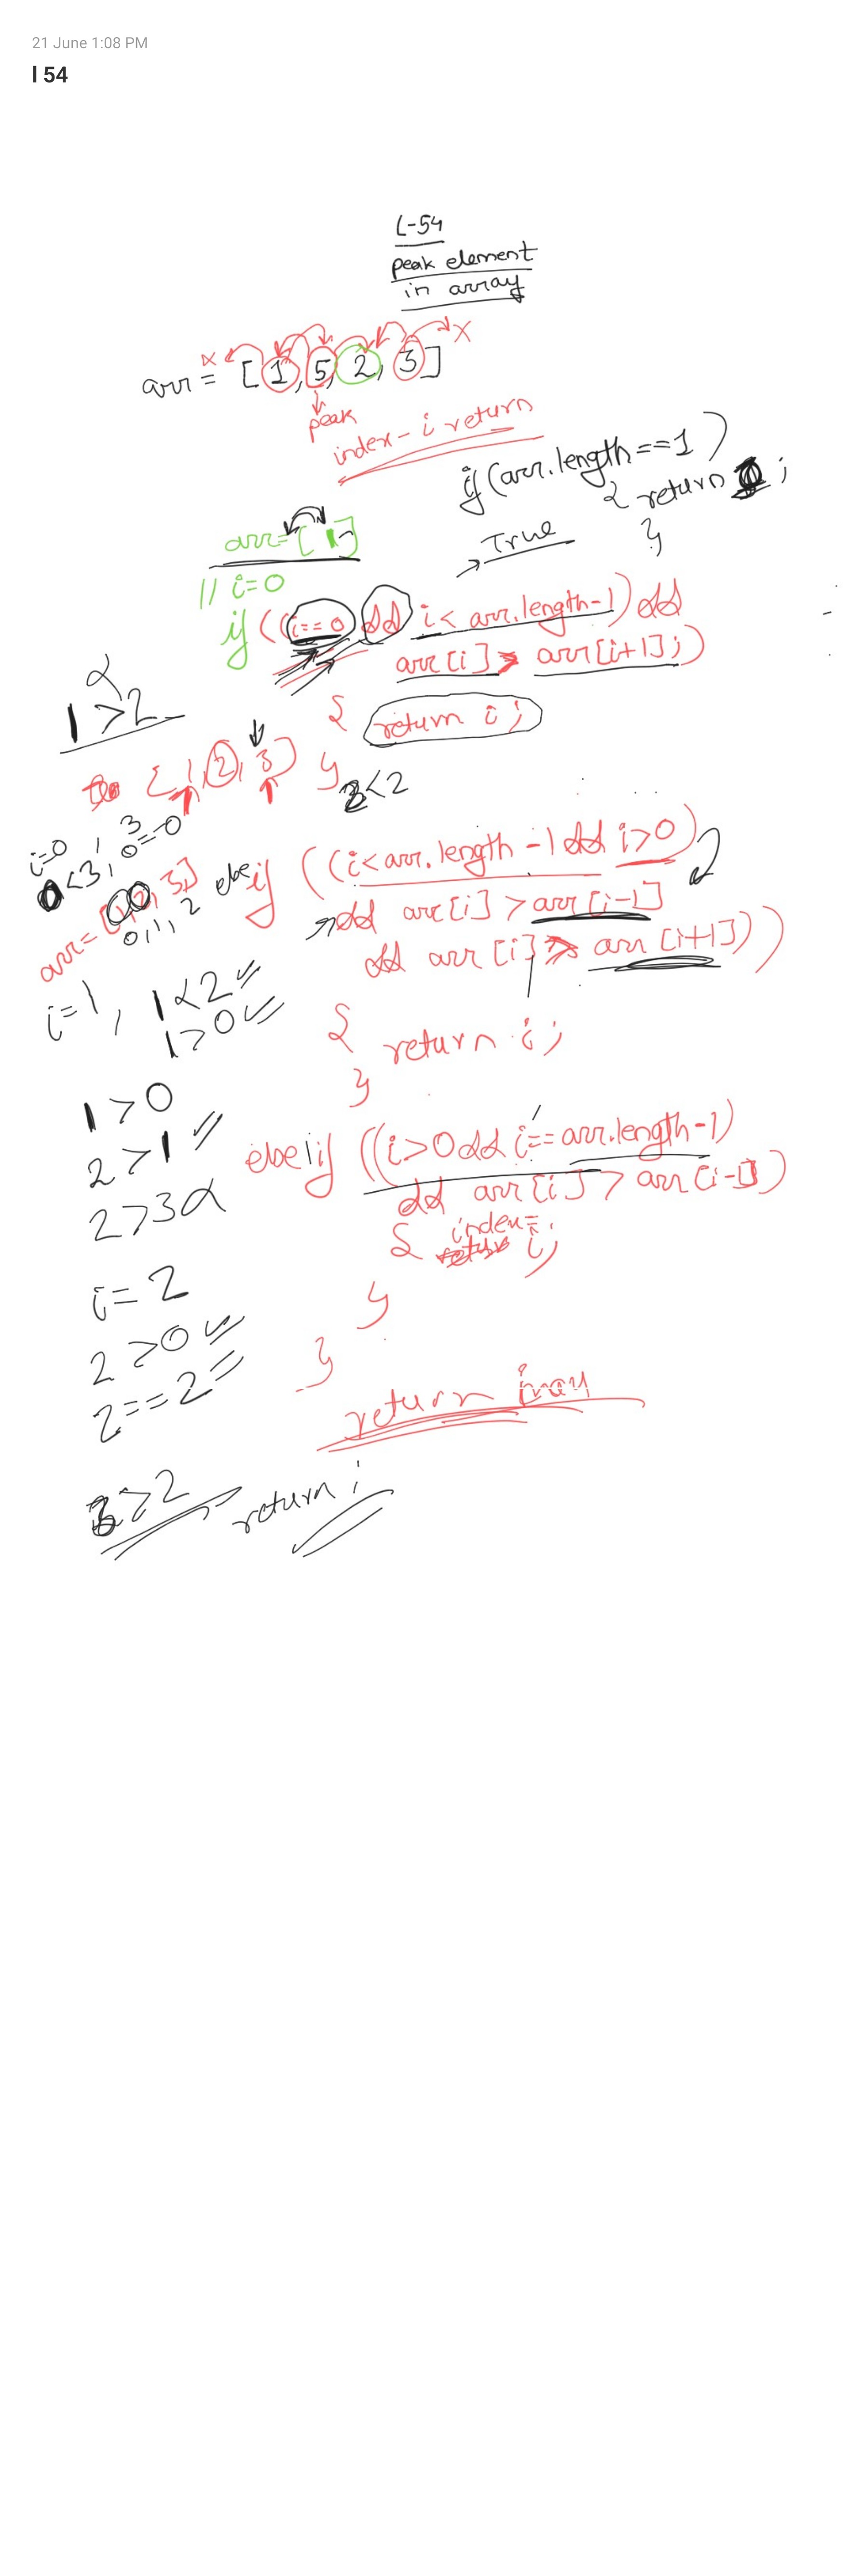 21 June 1:08 PM
l 54
L-54
peak element
in array
arr = [1, 5, 2, 3]
x
x
peak
index - i return
if (arr.length==1)
{ return 0;
}
arr=[1]
True
// i=0
if ((i==0 && i< arr.length-1) &&
arr[i] > arr[i+1];)
{ return i;
}
1>2
[1,2,3]
3<2
i=0, 3
0<3, 0==0
arr=[1,2,3]
0,1,2
else if ((i<arr.length-1 && i>0)
&& arr[i] > arr[i-1]
&& arr[i] > arr[i+1]))
i=1, 1<2
1>0
{ return i;
}
1>0
2>1
2>3
else if ((i>0 && i==arr.length-1)
&& arr[i] > arr[i-1])
{ index=
i;
}
i=2
2>0
2==2
}
return
3>2
return i